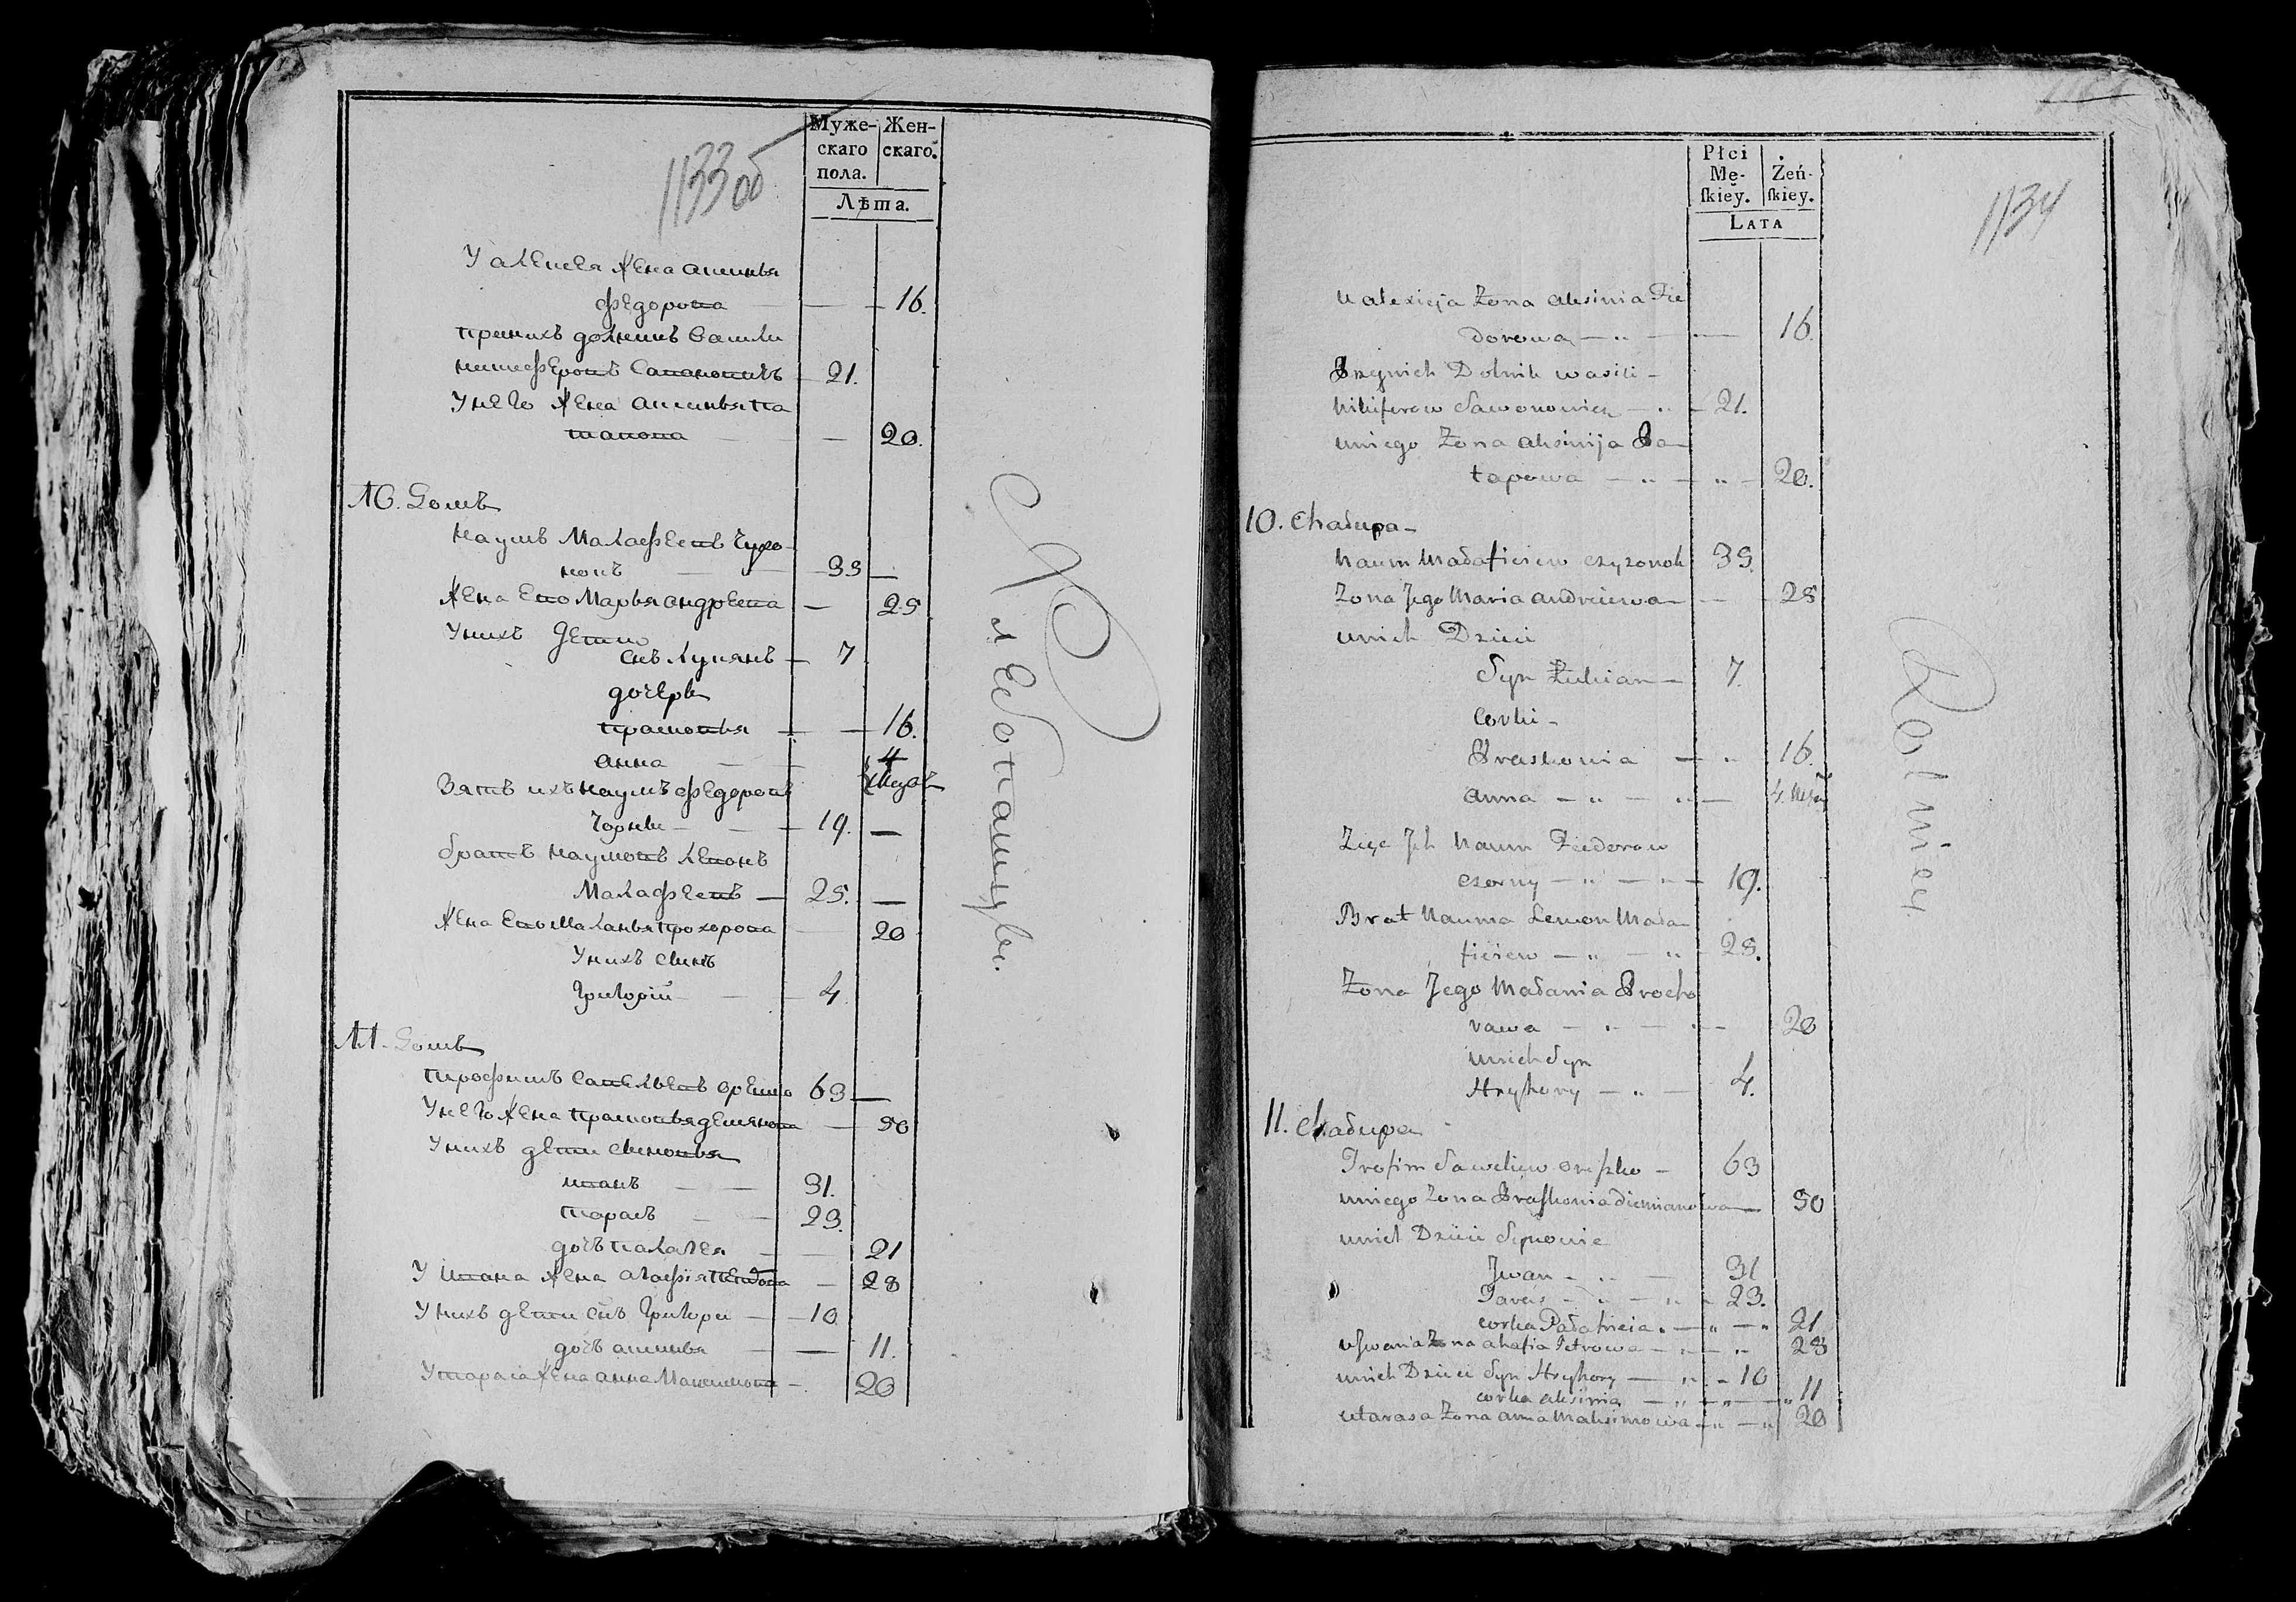 1133 об
Муже- Жен-
скаго скаго.
пола.
Лѣта.
У алексея жена аксинья
федорова — — 16.
При нихъ дольникъ васили
никифоровъ Савановичъ — 21.
У него жена аксинья па
тапова — — 20.
10. Домъ
Наумъ Малафеевъ Чузо
нокъ — — 33 —
Жена Ево Марья андреева — 25
У нихъ дети
снъ Лукянъ — 7
дочери
Прасковья — — 16.
анна — — 4
Зять ихъ наумъ федоровъ
Чорны — — 19. —
братъ наумовъ Левонъ
Малафеевъ — 25. —
Жена Ево Маланья Прохорова 20
У нихъ сынъ
Григорій — — 4
11. Домъ
Трофимъ Савельевъ орешко 63 —
У него жена Прасковья демянова — 50
У нихъ дети сыновья
иванъ — — 31.
тарасъ — — 23.
дочъ палагея — — 21
У Ивана жена агафія Петрова — 28
У нихъ дети снъ Григори — 10
дочъ аксинья — — 11.
У тараса жена анна Максимова — 20
Хлебопашцы.
1134
Płci
Mę- Żeń-
ſkiey. ſkiey.
LATA
u alexieja Żona aksinia Fie
dorowa — „ — — 16.
Przynich Dolnik wasili —
Nikiforow Sawonowicz — „ — 21.
uniego Żona aksinija Pa
tapowa — „ — „ — 20.
10. Chałupa —
Naum Małafieiew czyzonok 33.
Żona Jego Maria andreiewa — — 25
unich Dzieci
Syn Łukian — 7.
Corki —
Praskowia — „ 16.
anna — „ — „ —
Zięc Jch Naum Fiedorow
czorny — „ — „ — 19.
Brat Nauma Lewon Mała
fieiew — „ — „ — 25.
Żona Jego Małania Procho
rowa — „ — „ — 20
unich Syn
Hryhory — „ — 4.
11. Chałupa
Trofim Saweliew oreszko — 63
uniego Żona Praskowia diemianowa — 50
unich Dzieci Synowie
Jwan — „ — 31
Taras — „ — „ — 23.
corka Pałahieia — „ — „ 21
u Jwana Żona ahafia Petrowa — „ — „ 28
unich Dzieci Syn Hryhory — „ — 10
corka aksinia — „ — „ — „ 11
u tarasa Żona anna Maksimowa — „ — „ 20
Rolnicy.